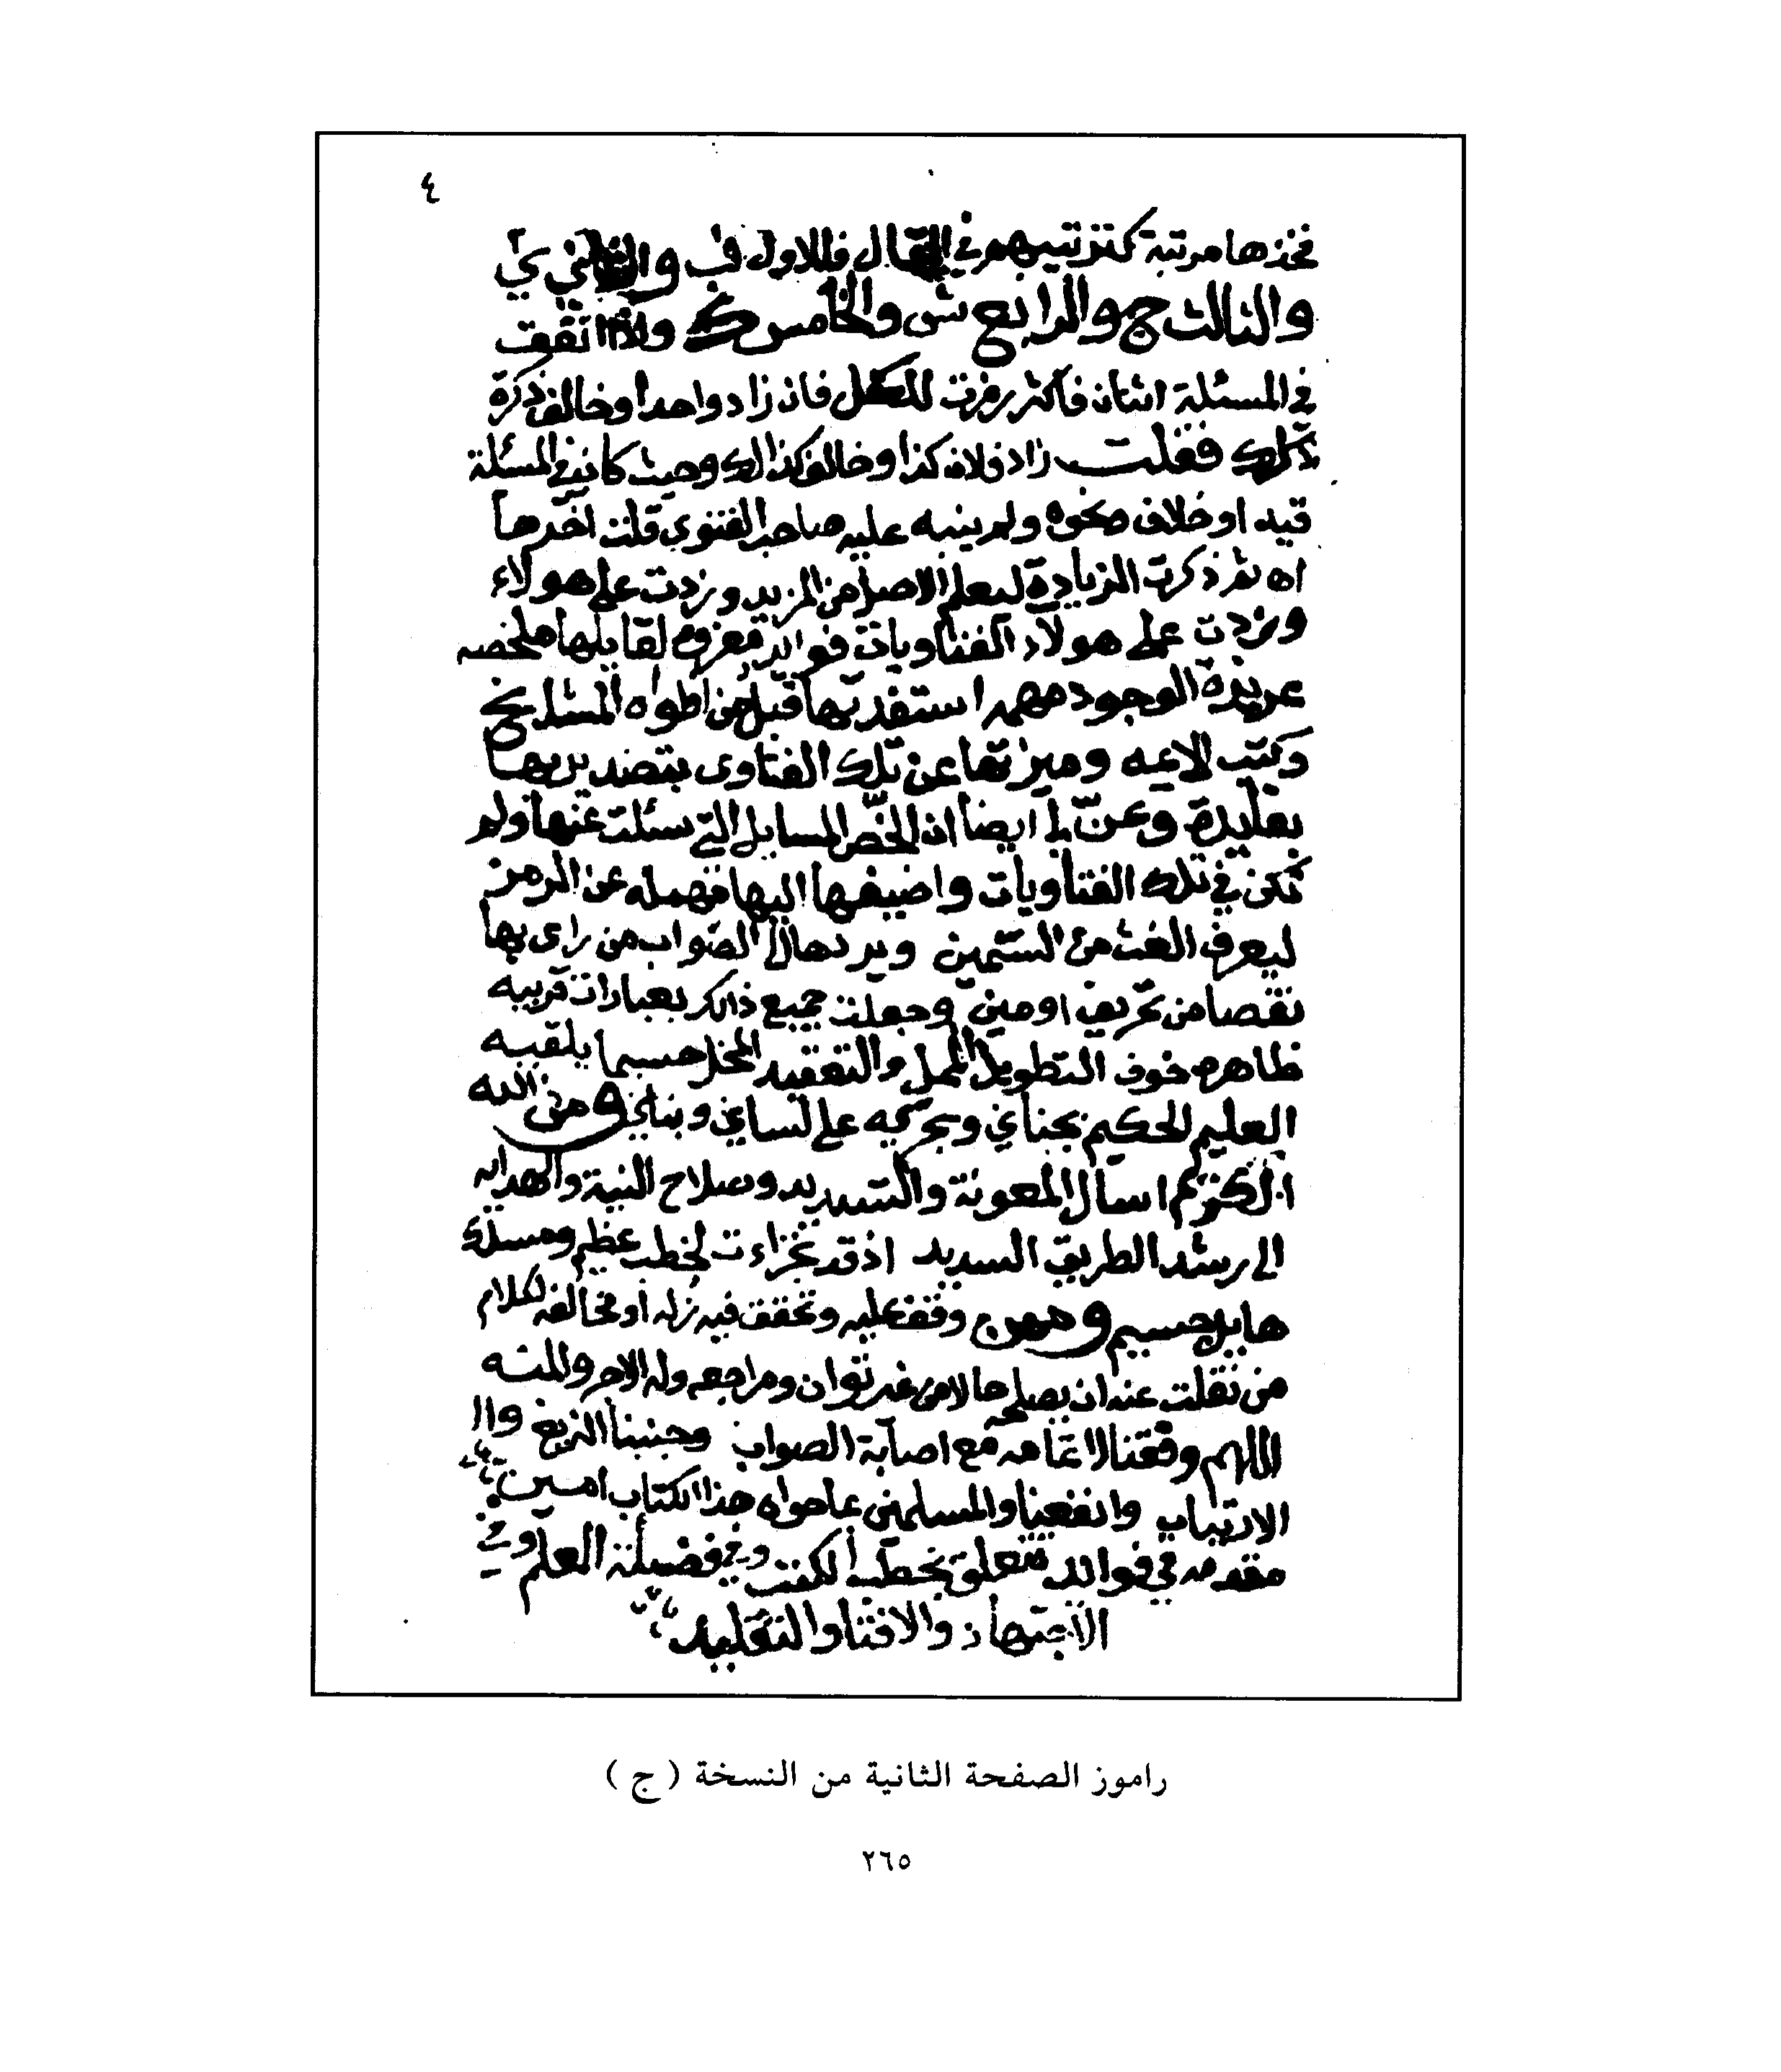 ٤
فخذها مرتبة كترتيبهم في المقال فللاول ب والثاني ي
والثالث ج والرابع ش والخامس ك واذا اتفقت
في المسئلة اثنان فأكثر رمزت للكل فان زاد واحد او خالف ذكرة
فقلت زاد فلان كذا وخالف كذالك وحيث كان في المسئلة
قيد او خلاف ونحوه ولم ينبه عليه صاحب الفتوى قلت اخرها
اه ثم ذكرت الزيادة ليعلم الاصل من المزيد وزدت على هولاء
وزدت على هولاء الفتاويات فوايد لقايلها ملخصه
عزيزة الوجود مهمه استفدتها قبل من افواه المشايخ
وكتب الايمه وميزتها عن تلك الفتاوى بتصديرها
بفايدة وعنّ لي ايضا ان الخّص المسايل التي سئلت عنها ولم
تكن في تلك الفتاويات واضيفها اليها مهمله عن الرمز
ليعرف الغث من السمين ويردها الى الصواب من راى بها
نقصا من تحريف او مين وجعلت جميع ذالك بعبارات قريبه
ظاهره خوف التطويل الممل والتعقيد المخل حسبما يلقيه
العليم الحكيم بجناني ويجريه على لساني وبناني ومن الله
الكريم اسال المعونة والتسديد وصلاح النية والهدايه
الى رشد الطريق السديد اذ قد تجراءت لخطب عظيم ومسلك
هايل جسيم ومن وقف عليه وتحقق فيه زله او مخالفه لكلام
من نقلت عنه ان يصلحه حالا من غير توان ومراجعه وله الاجر والمنه
اللهم وفقنا لاتمامه مع اصابة الصواب وجنبنا الزيغ وا
الارتياب وانفعنا والمسلمين بما حواه هذا الكتاب امين
مقدمه في فوائد تتعلق بخطب الكتب وفي فضيلة العلم وفي
الاجتهاد والافتا والتقليد
راموز الصفحة الثانية من النسخة ( ج )
٢٦٥